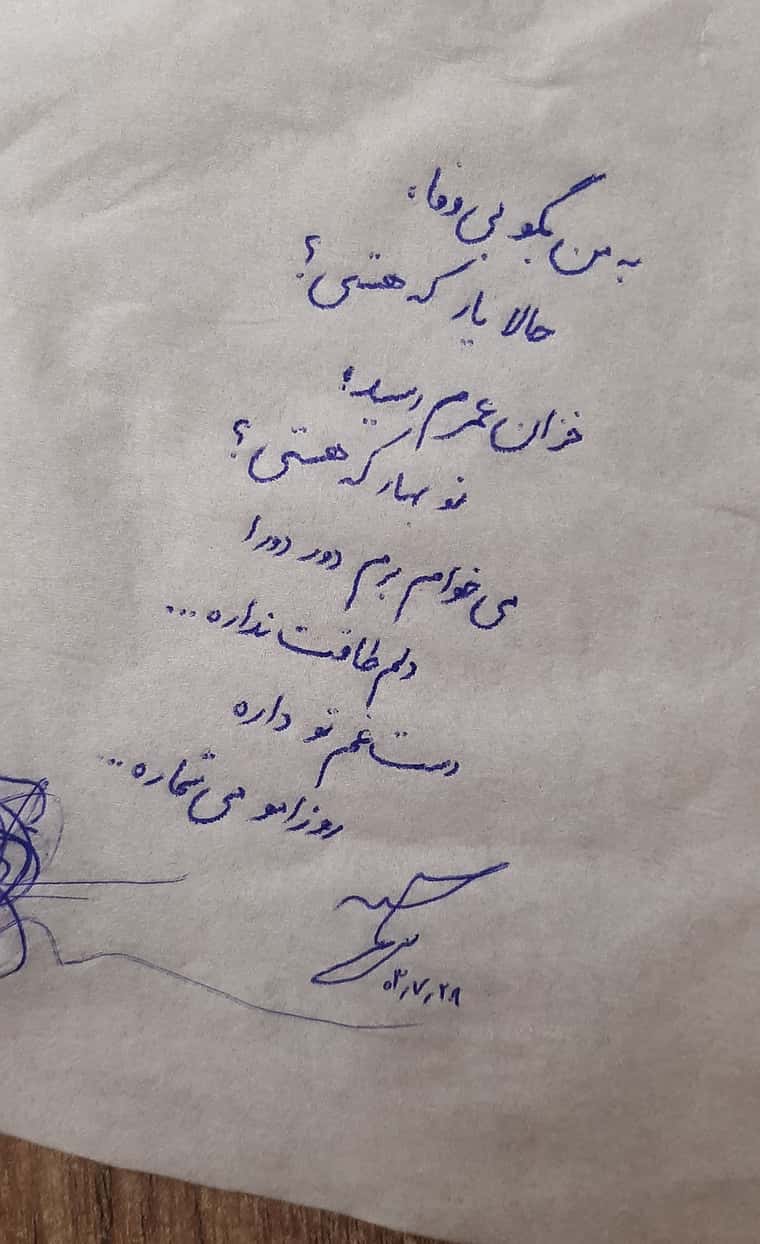 به من بگو بی وفا،
حالا یار که هستی؟
خزان عمرم رسید؛
نو بهار که هستی؟
می خوام برم دور دورا
دلم طاقت نداره...
دست غم تو داره
روزامو می شماره...
۰۳٫۷٫۲۸